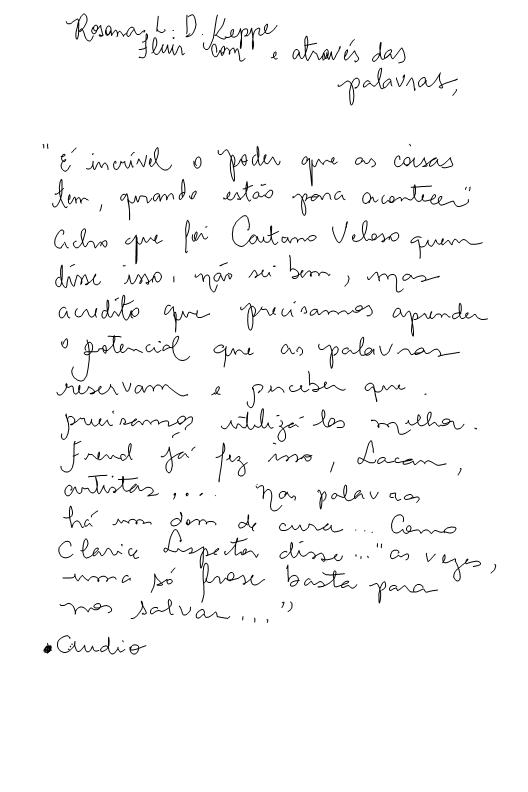 Rosana L. D. Keppe
Fluir com e através das
palavras,
"É incrível o poder que as coisas
tem, quando estão para acontecer"
Acho que foi Caetano Veloso quem
disse isso, não sei bem, mas
acredito que precisamos aprender
o potencial que as palavras
reservam e perceber que
precisamos utilizá-las melhor.
Freud já fez isso, Lacan,
artistas,... Nas palavras
há um dom de cura... Como
Clarice Lispector disse..."as vezes,
uma só frase basta para
nos salvar..."